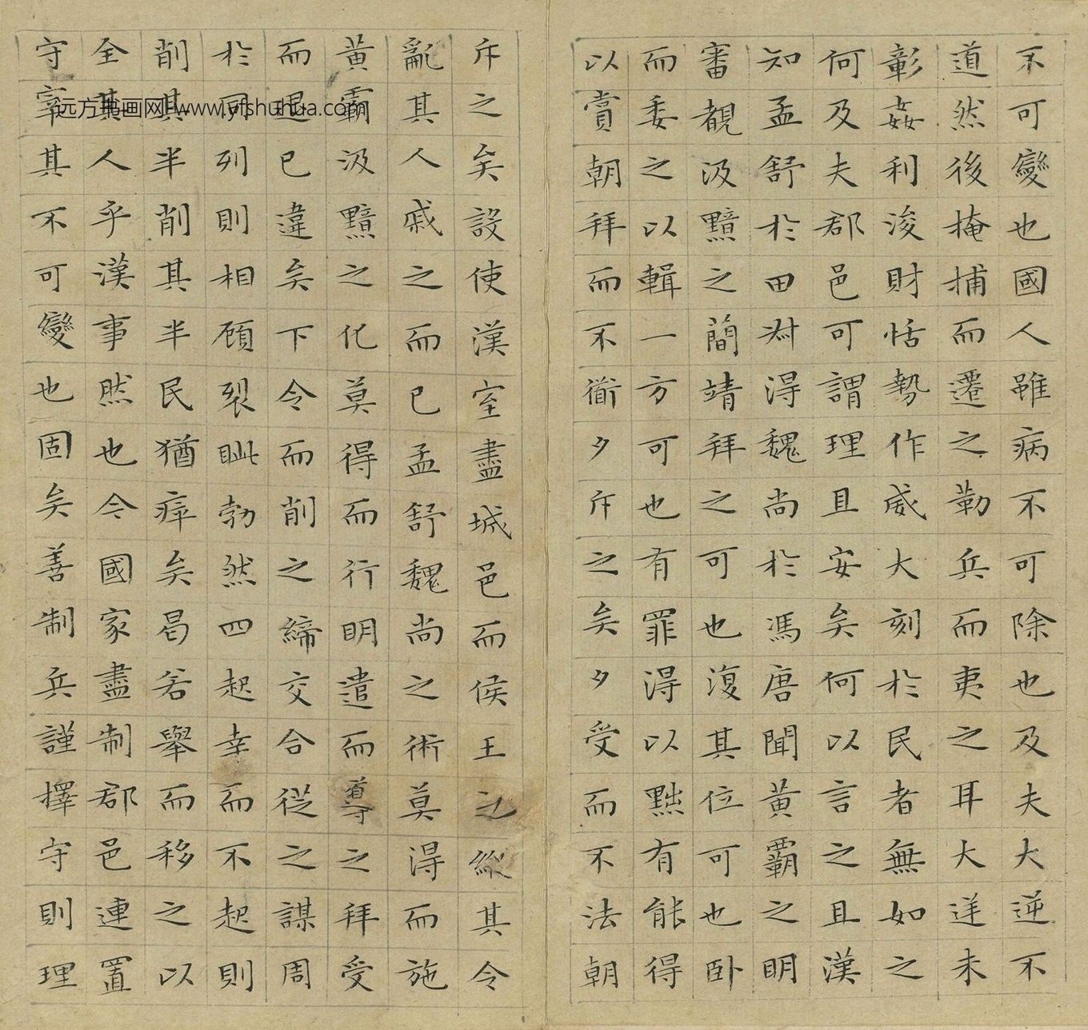 不可變也國人雖病不可除也及夫大逆不
道然後掩捕而遷之勒兵而夷之耳大逆未
彰姦利浚財怙勢作威大刻於民者無如之
何及夫郡邑可謂理且安矣何以言之且漢
知孟舒於田叔得魏尚於馮唐聞黃霸之明
審覩汲黯之簡靖拜之可也復其位可也卧
而委之以輯一方可也有罪得以黜有能得
以賞朝拜而不衜夕斥之矣夕受而不法朝
斥之矣設使漢室盡城邑而侯王之縱其令
亂其人戚之而已孟舒魏尚之術莫得而施
黃霸汲黯之化莫得而行明遣而導之拜受
而退已違矣下令而削之締交合從之謀周
於同列則相顧裂眦勃然四起幸而不起則
削其半削其半民猶瘁矣曷若舉而移之以
全其人乎漢事然也今國家盡制郡邑連置
守宰其不可變也固矣善制兵謹擇守則理
远方书画网 www.yfshuhua.com